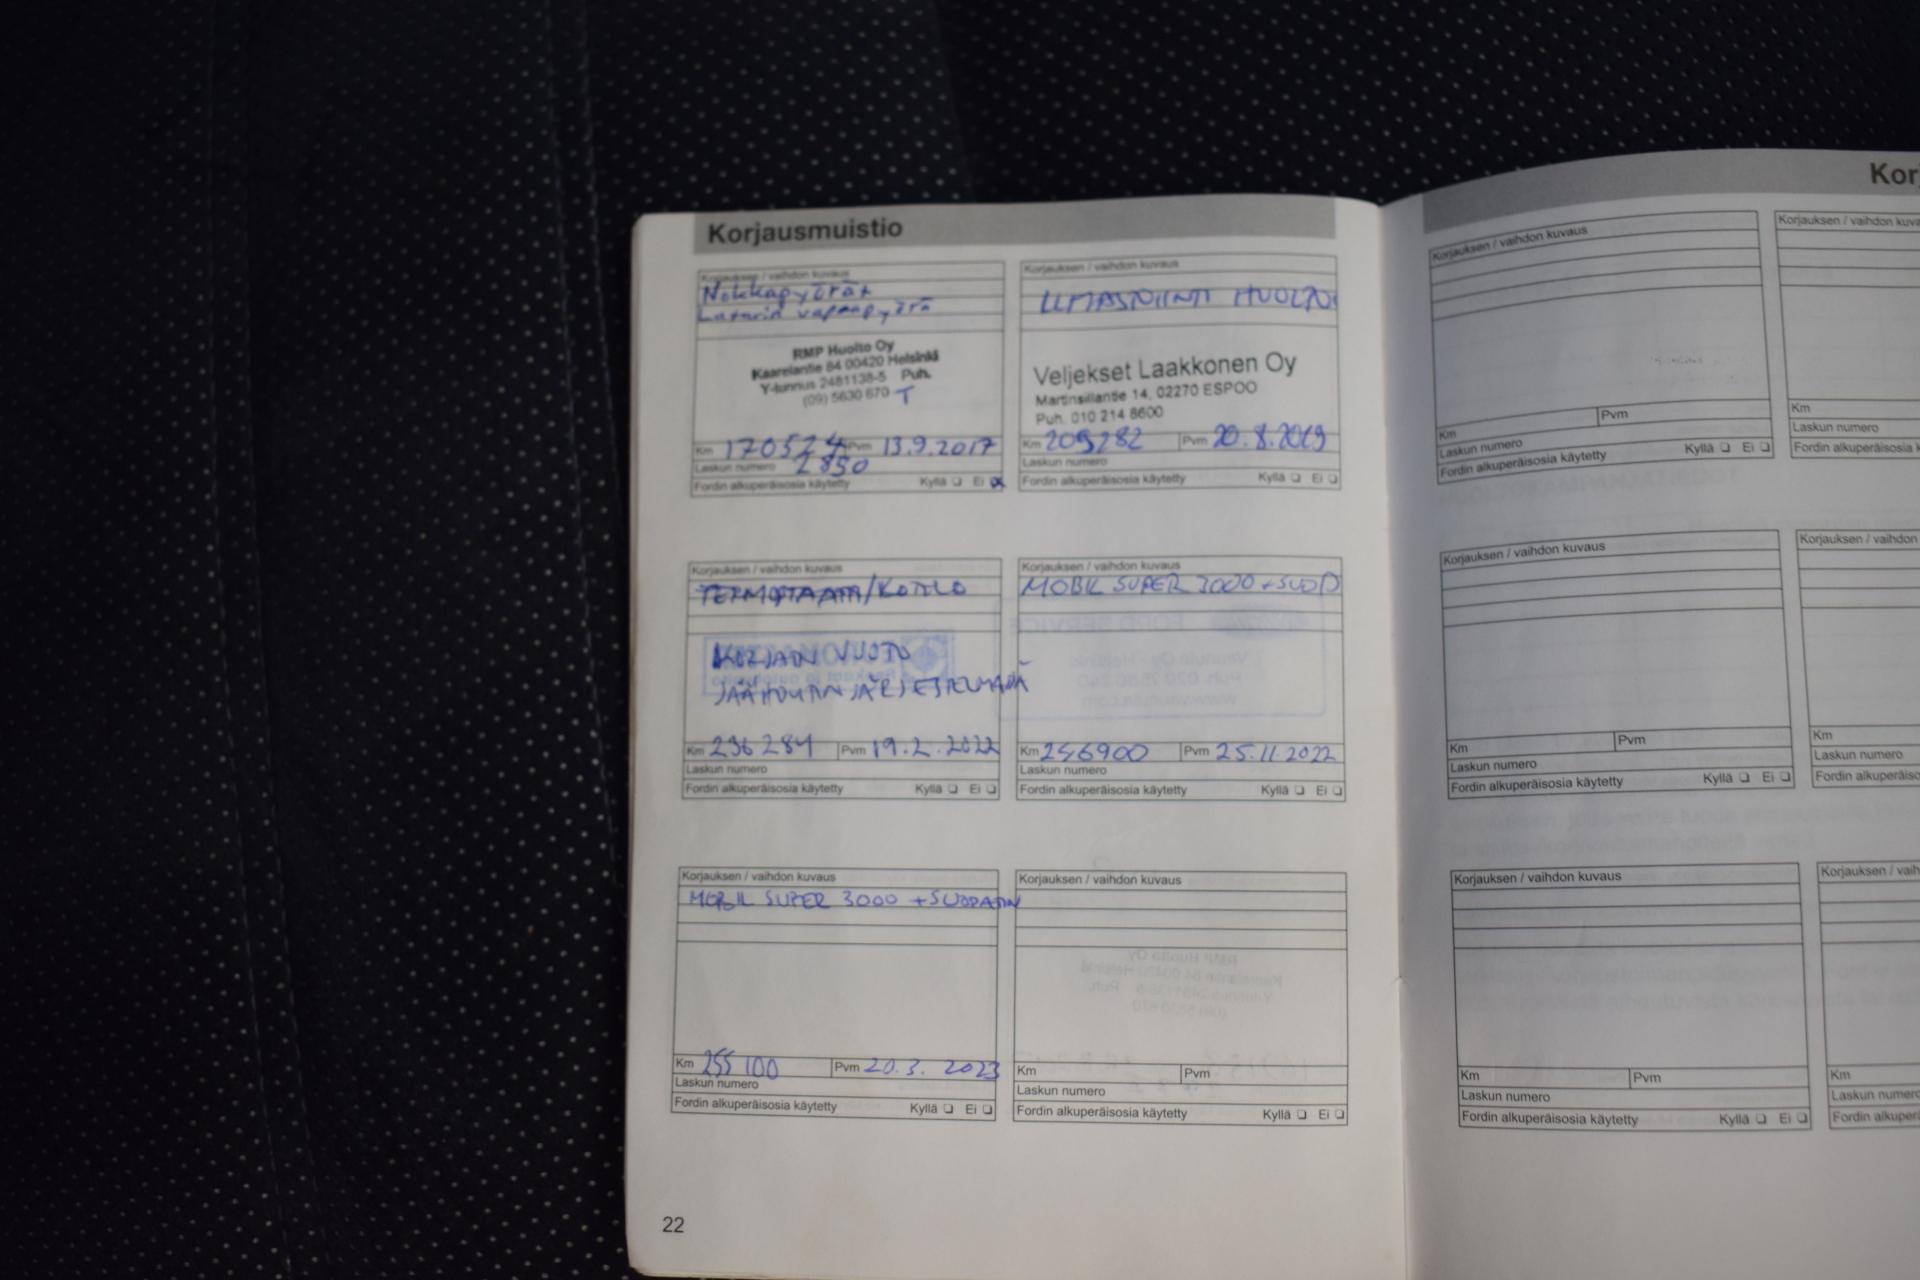 Korjausmuistio
Korjauksen / vaihdon kuvaus
Nokkapyörät
Laturin vapaapyörä
RMP Huolto Oy
Kaarelantie 84 00420 Helsinki
Y-tunnus 2481138-5 Puh.
(09) 5630 670 T
Km 170524 Pvm 13.9.2017
Laskun numero 2850
Fordin alkuperäisosia käytetty Kyllä ❏ Ei ❏
Korjauksen / vaihdon kuvaus
ILMASTOINTI HUOLTO
Veljekset Laakkonen Oy
Martinsillantie 14, 02270 ESPOO
Puh. 010 214 8600
Km 209282 Pvm 20.8.2019
Laskun numero
Fordin alkuperäisosia käytetty Kyllä ❏ Ei ❏
Korjauksen / vaihdon kuvaus
TERMOSTAATTI/KOTELO
KORJATTU VUOTO
Km 236284 Pvm 19.2.2022
Laskun numero
Fordin alkuperäisosia käytetty Kyllä ❏ Ei ❏
Korjauksen / vaihdon kuvaus
MOBIL SUPER 3000 + SUOD
Km 246900 Pvm 25.11.2022
Laskun numero
Fordin alkuperäisosia käytetty Kyllä ❏ Ei ❏
Korjauksen / vaihdon kuvaus
MOBIL SUPER 3000 + SUODATIN
Km 255100 Pvm 20.3.2023
Laskun numero
Fordin alkuperäisosia käytetty Kyllä ❏ Ei ❏
Korjauksen / vaihdon kuvaus
Km Pvm
Laskun numero
Fordin alkuperäisosia käytetty Kyllä ❏ Ei ❏
22
Kor
Korjauksen / vaihdon kuvaus
Km Pvm
Laskun numero
Fordin alkuperäisosia käytetty Kyllä ❏ Ei ❏
Korjauksen / vaihdon kuva
Km
Laskun numero
Fordin alkuperäisosia
Korjauksen / vaihdon kuvaus
Km Pvm
Laskun numero
Fordin alkuperäisosia käytetty Kyllä ❏ Ei ❏
Korjauksen / vaihdon
Km
Laskun numero
Fordin alkuperäiso
Korjauksen / vaihdon kuvaus
Km Pvm
Laskun numero
Fordin alkuperäisosia käytetty Kyllä ❏ Ei ❏
Korjauksen / vaih
Km
Laskun numero
Fordin alkuper